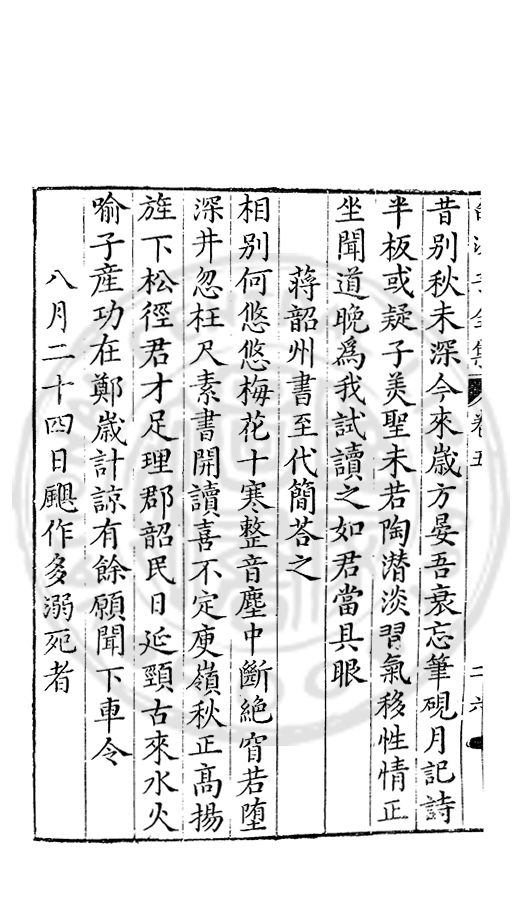 昔別秋未深今來歲方晏吾衰忘筆硯月記詩
半板或疑子美聖未若陶潛淡習氣移性情正
坐聞道晚爲我試讀之如君當具眼
蔣韶州書至代簡荅之
相別何悠悠梅花十寒整音塵中斷絶窅若墮
深井忽枉尺素書開讀喜不定庾嶺秋正高揚
旌下松徑君才足理郡韶民日延頸古來水火
喻子産功在鄭歲計諒有餘願聞下車令
八月二十四日颶作多溺死者